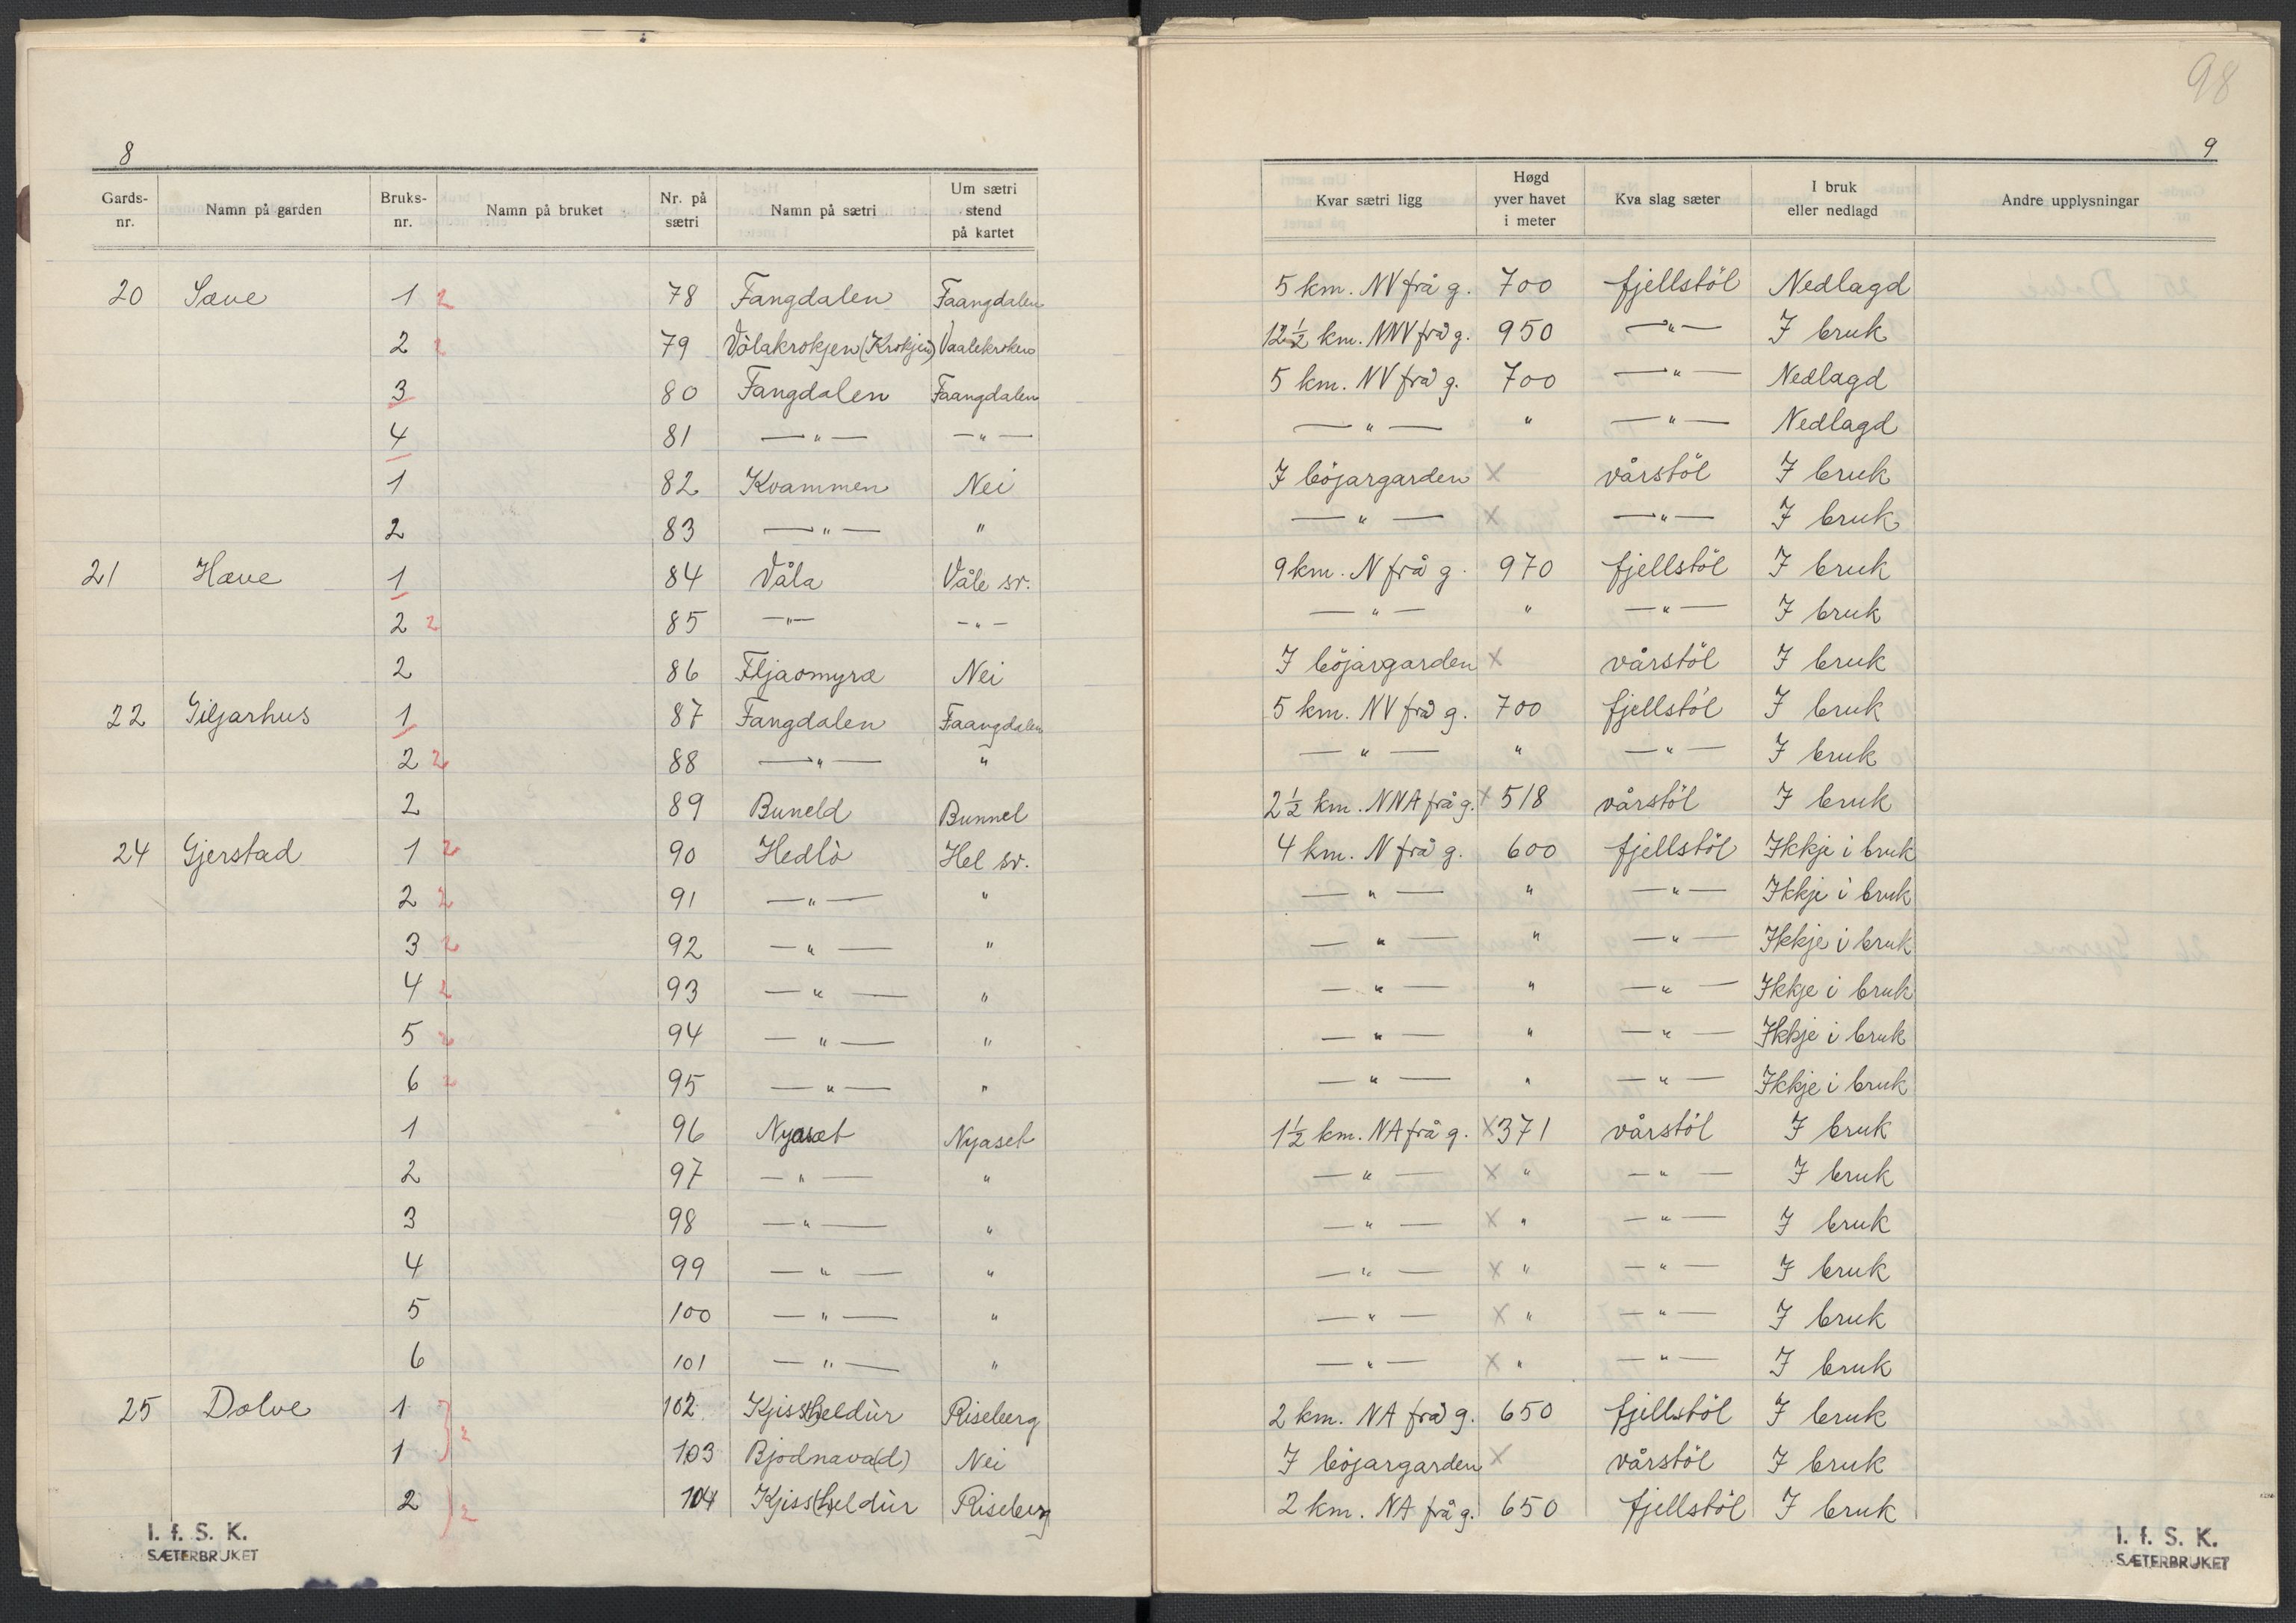 98
8
Gards-nr. | Namn på garden | Bruks-nr. | Namn på bruket | Nr. på sætri | Namn på sætri | Um sætri stend på kartet
20 Sæve 1 2 78 Fangdalen Faangdalen
2 2 79 Völakrokjen (Krokjen) Vaalekroken
3 80 Fangdalen Faangdalen
4 81 —"— —"—
1 82 Kvammen Nei
2 83 —"— "
21 Hæve 1 84 Våla Våle sr.
2 2 85 —"— —"—
2 86 Fljaomyra Nei
22 Giljarhus 1 87 Fangdalen Faangdalen
2 2 88 —"— "
2 89 Buneld Bunnel
24 Gjerstad 1 2 90 Hedlò Hel sr.
2 2 91 —"— "
3 2 92 —"— "
4 2 93 —"— "
5 2 94 —"— "
6 2 95 —"— "
1 96 Nyaset Nyaset
2 97 —"— "
3 98 —"— "
4 99 —"— "
5 100 —"— "
6 101 —"— "
25 Dolve 1 } 2 102 Kjiss(h)eldùr Riseberg
1 103 Bjødnava(d) Nei
2 } 2 104 Kjiss(h)eldùr Riseberg
I. f. S. K.
SÆTERBRUKET
9
Kvar sætri ligg | Høgd yver havet i meter | Kva slag sæter | I bruk eller nedlagd | Andre upplysningar
5 km. NV frå g. 700 fjellstöl Nedlagd
12 1/2 km. NNV frå g. 950 —"— I bruk
5 km. NV frå g. 700 —"— Nedlagd
—"— " —"— Nedlagd
I böjargarden X vårstöl I bruk
—"— X —"— I bruk
9 km. N frå g. 970 fjellstöl I bruk
—"— " —"— I bruk
I böjargarden X vårstöl I bruk
5 km. NV frå g. 700 fjellstöl I bruk
—"— " —"— I bruk
2 1/2 km. NNA frå g. X 518 vårstöl I bruk
4 km. N frå g. 600 fjellstöl Ikkje i bruk
—"— " —"— Ikkje i bruk
—"— " —"— Ikkje i bruk
—"— " —"— Ikkje i bruk
—"— " —"— Ikkje i bruk
—"— " —"— Ikkje i bruk
1 1/2 km. NA frå g. X 371 vårstöl I bruk
—"— X " —"— I bruk
—"— X " —"— I bruk
—"— X " —"— I bruk
—"— X " —"— I bruk
—"— X " —"— I bruk
2 km. NA frå g. 650 fjellstöl I bruk
I böjargarden X vårstöl I bruk
2 km. NA frå g. 650 fjellstöl I bruk
I. f. S. K.
SÆTERBRUKET